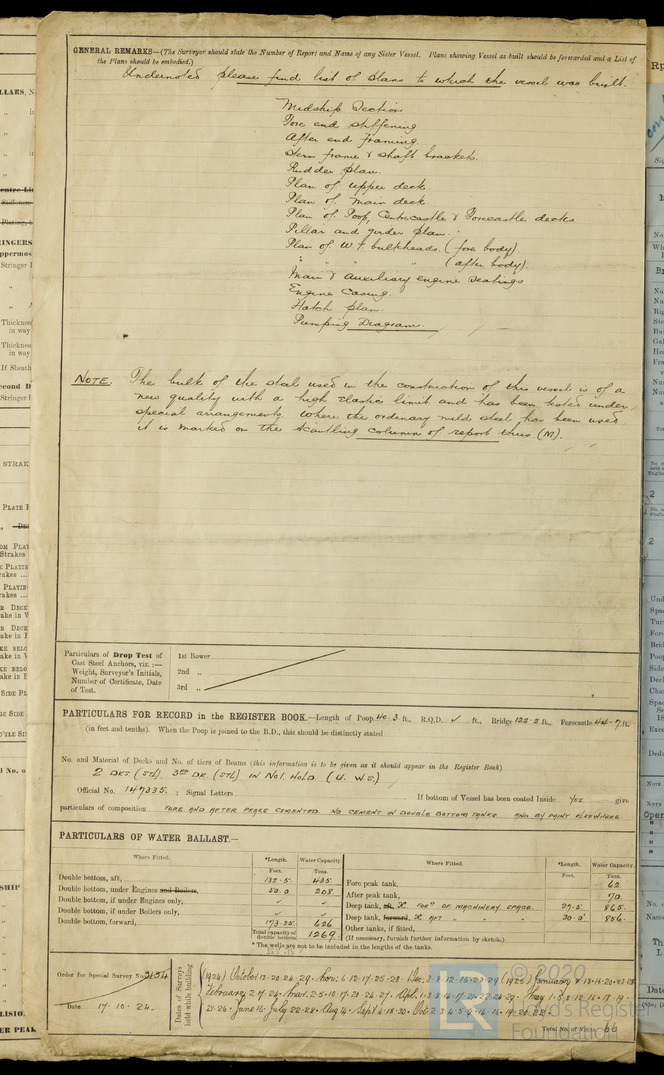 GENERAL REMARKS—(The Surveyor should state the Number of Report and Name of any Sister Vessel. Plans showing Vessel as built should be forwarded and a List of
the Plans should be embodied.)
Undernoted please find list of plans to which the vessel was built.
Midship Section
Fore end stiffening
After end framing.
Stern frame & shaft brackets.
Rudder plan.
Plan of upper deck.
Plan of main deck
Plan of Poop, Centrecastle & Forecastle decks
Pillar and girder plan.
Plan of W.T. bulkheads. (fore body).
" " " (after body).
Main & Auxiliary engine seatings
Engine Casing.
Hatch plan.
Pumping Diagram.
NOTE. The bulk of the steel used in the construction of this vessel is of a
new quality with a high elastic limit and has been tested under
special arrangements where the ordinary mild steel has been used
it is marked on the scantling column of report thus (M).
Particulars of Drop Test of
Cast Steel Anchors, viz.:—
Weight, Surveyor's Initials,
Number of Certificate, Date
of Test.
1st Bower
2nd "
3rd "
PARTICULARS FOR RECORD in the REGISTER BOOK.—Length of Poop 40.3 ft., R.Q.D. ✓ ft., Bridge 122.2 ft., Forecastle 44.7 ft.
(in feet and tenths). When the Poop is joined to the B.D., this should be distinctly stated
No. and Material of Decks and No. of tiers of Beams (this information is to be given as it should appear in the Register Book)
2 DKS (STL) 3RD DK (STL) IN No1. HOLD (U. W.S.)
Official No. 147335. ; Signal Letters If bottom of Vessel has been coated Inside yes give
particulars of composition FORE AND AFTER PEAKS CEMENTED. NO CEMENT IN DOUBLE BOTTOM TANKS AND BY PAINT ELSEWHERE
PARTICULARS OF WATER BALLAST.—
Where Fitted. *Length. Water Capacity. Where Fitted. *Length. Water Capacity.
Feet. Tons. Feet. Tons.
Double bottom, aft, 132.5 435. Fore peak tank, 62
Double bottom, under Engines and Boilers, 50.0 208 After peak tank, 70
Double bottom, if under Engines only, ✓ ✓ Deep tank, aft, FORD OF MACHINERY SPACE. 27.5. 865.
Double bottom, if under Boilers only, ✓ ✓ Deep tank, forward, AFT " " " 30.0' 856.
Double bottom, forward, 173.25 626 Other tanks, if fitted,
Total capacity of double bottom 1269 (If necessary, furnish further information by sketch.)
* The wells are not to be included in the lengths of the tanks.
Order for Special Survey No.
Date 17.10.24.
Dates of Surveys held while building
(1924) October 13.20.24.29. Nov: 6.12.17.25.28. Dec:
February 2.17.24.
Total No. of Visits 66
© 2020
Lloyd's Register
Foundation